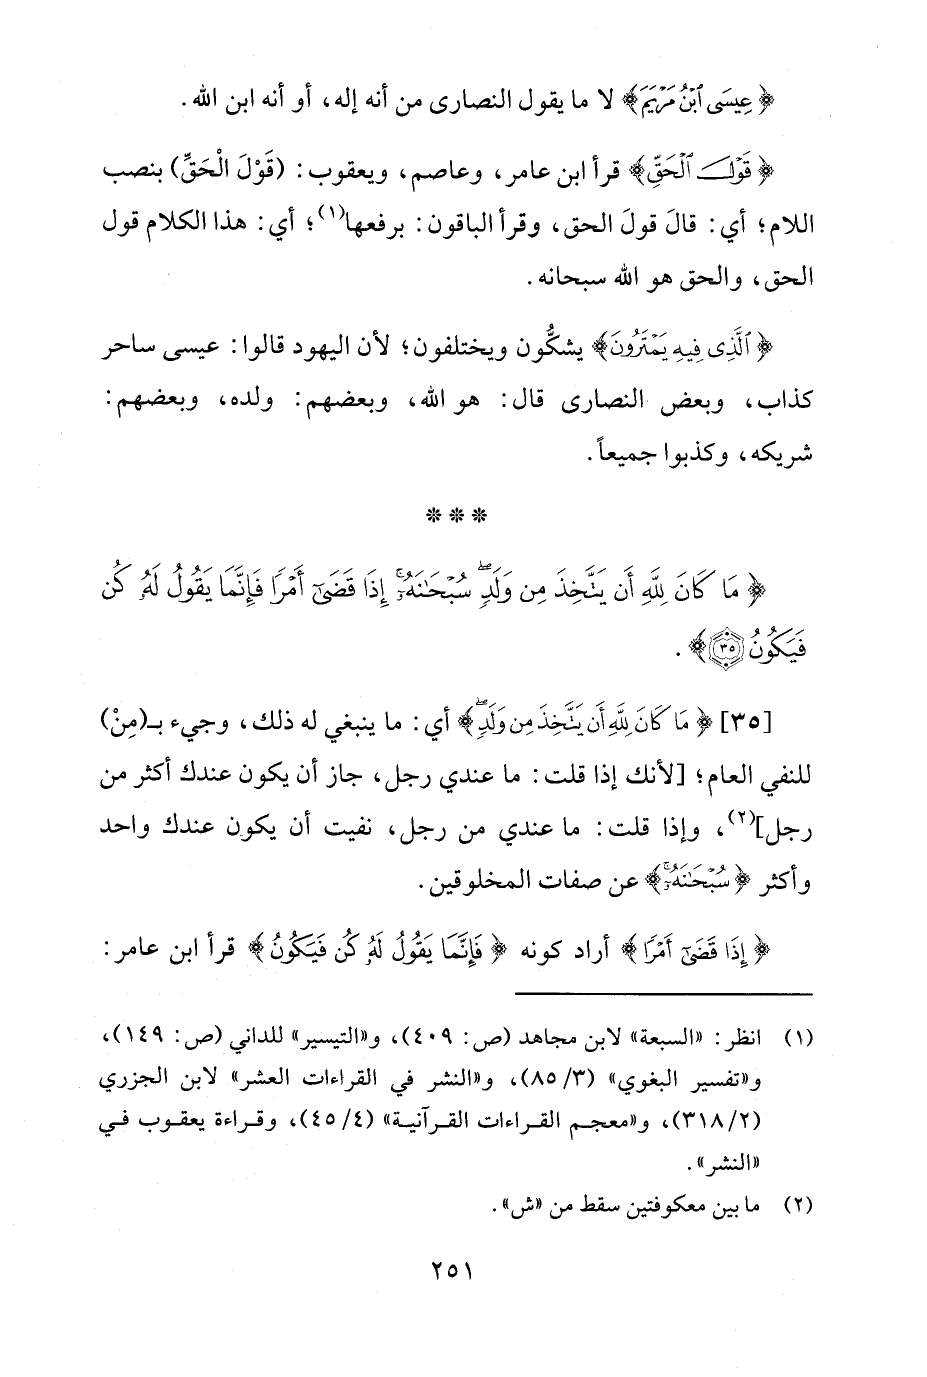 ﴿عِيسَى ٱبْنُ مَرْيَمَ﴾ لا ما يقول النصارى من أنه إله، أو أنه ابن الله.
﴿قَوْلَ ٱلْحَقِّ﴾ قرأ ابن عامر، وعاصم، ويعقوب: (قَوْلَ الْحَقِّ) بنصب
اللام؛ أي: قالَ قولَ الحق، وقرأ الباقون: برفعها(١)؛ أي: هذا الكلام قول
الحق، والحق هو الله سبحانه.
﴿ٱلَّذِى فِيهِ يَمْتَرُونَ﴾ يشكُّون ويختلفون؛ لأن اليهود قالوا: عيسى ساحر
كذاب، وبعض النصارى قال: هو الله، وبعضهم: ولده، وبعضهم:
شريكه، وكذبوا جميعاً.
* * *
﴿مَا كَانَ لِلَّهِ أَن يَتَّخِذَ مِن وَلَدٍۖ سُبْحَٰنَهُۥٓۚ إِذَا قَضَىٰٓ أَمْرًا فَإِنَّمَا يَقُولُ لَهُۥ كُن
فَيَكُونُ ٣٥﴾.
[٣٥] ﴿مَا كَانَ لِلَّهِ أَن يَتَّخِذَ مِن وَلَدٍۖ﴾ أي: ما ينبغي له ذلك، وجيء بـ(مِنْ)
للنفي العام؛ [لأنك إذا قلت: ما عندي رجل، جاز أن يكون عندك أكثر من
رجل](٢)، وإذا قلت: ما عندي من رجل، نفيت أن يكون عندك واحد
وأكثر ﴿سُبْحَٰنَهُۥٓۚ﴾ عن صفات المخلوقين.
﴿إِذَا قَضَىٰٓ أَمْرًا﴾ أراد كونه ﴿فَإِنَّمَا يَقُولُ لَهُۥ كُن فَيَكُونُ﴾ قرأ ابن عامر:
(١) انظر: «السبعة» لابن مجاهد (ص: ٤٠٩)، و«التيسير» للداني (ص: ١٤٩)،
و«تفسير البغوي» (٣/ ٨٥)، و«النشر في القراءات العشر» لابن الجزري
(٢/ ٣١٨)، و«معجم القراءات القرآنية» (٤/ ٤٥)، وقراءة يعقوب في
«النشر».
(٢) ما بين معكوفتين سقط من «ش».
٢٥١